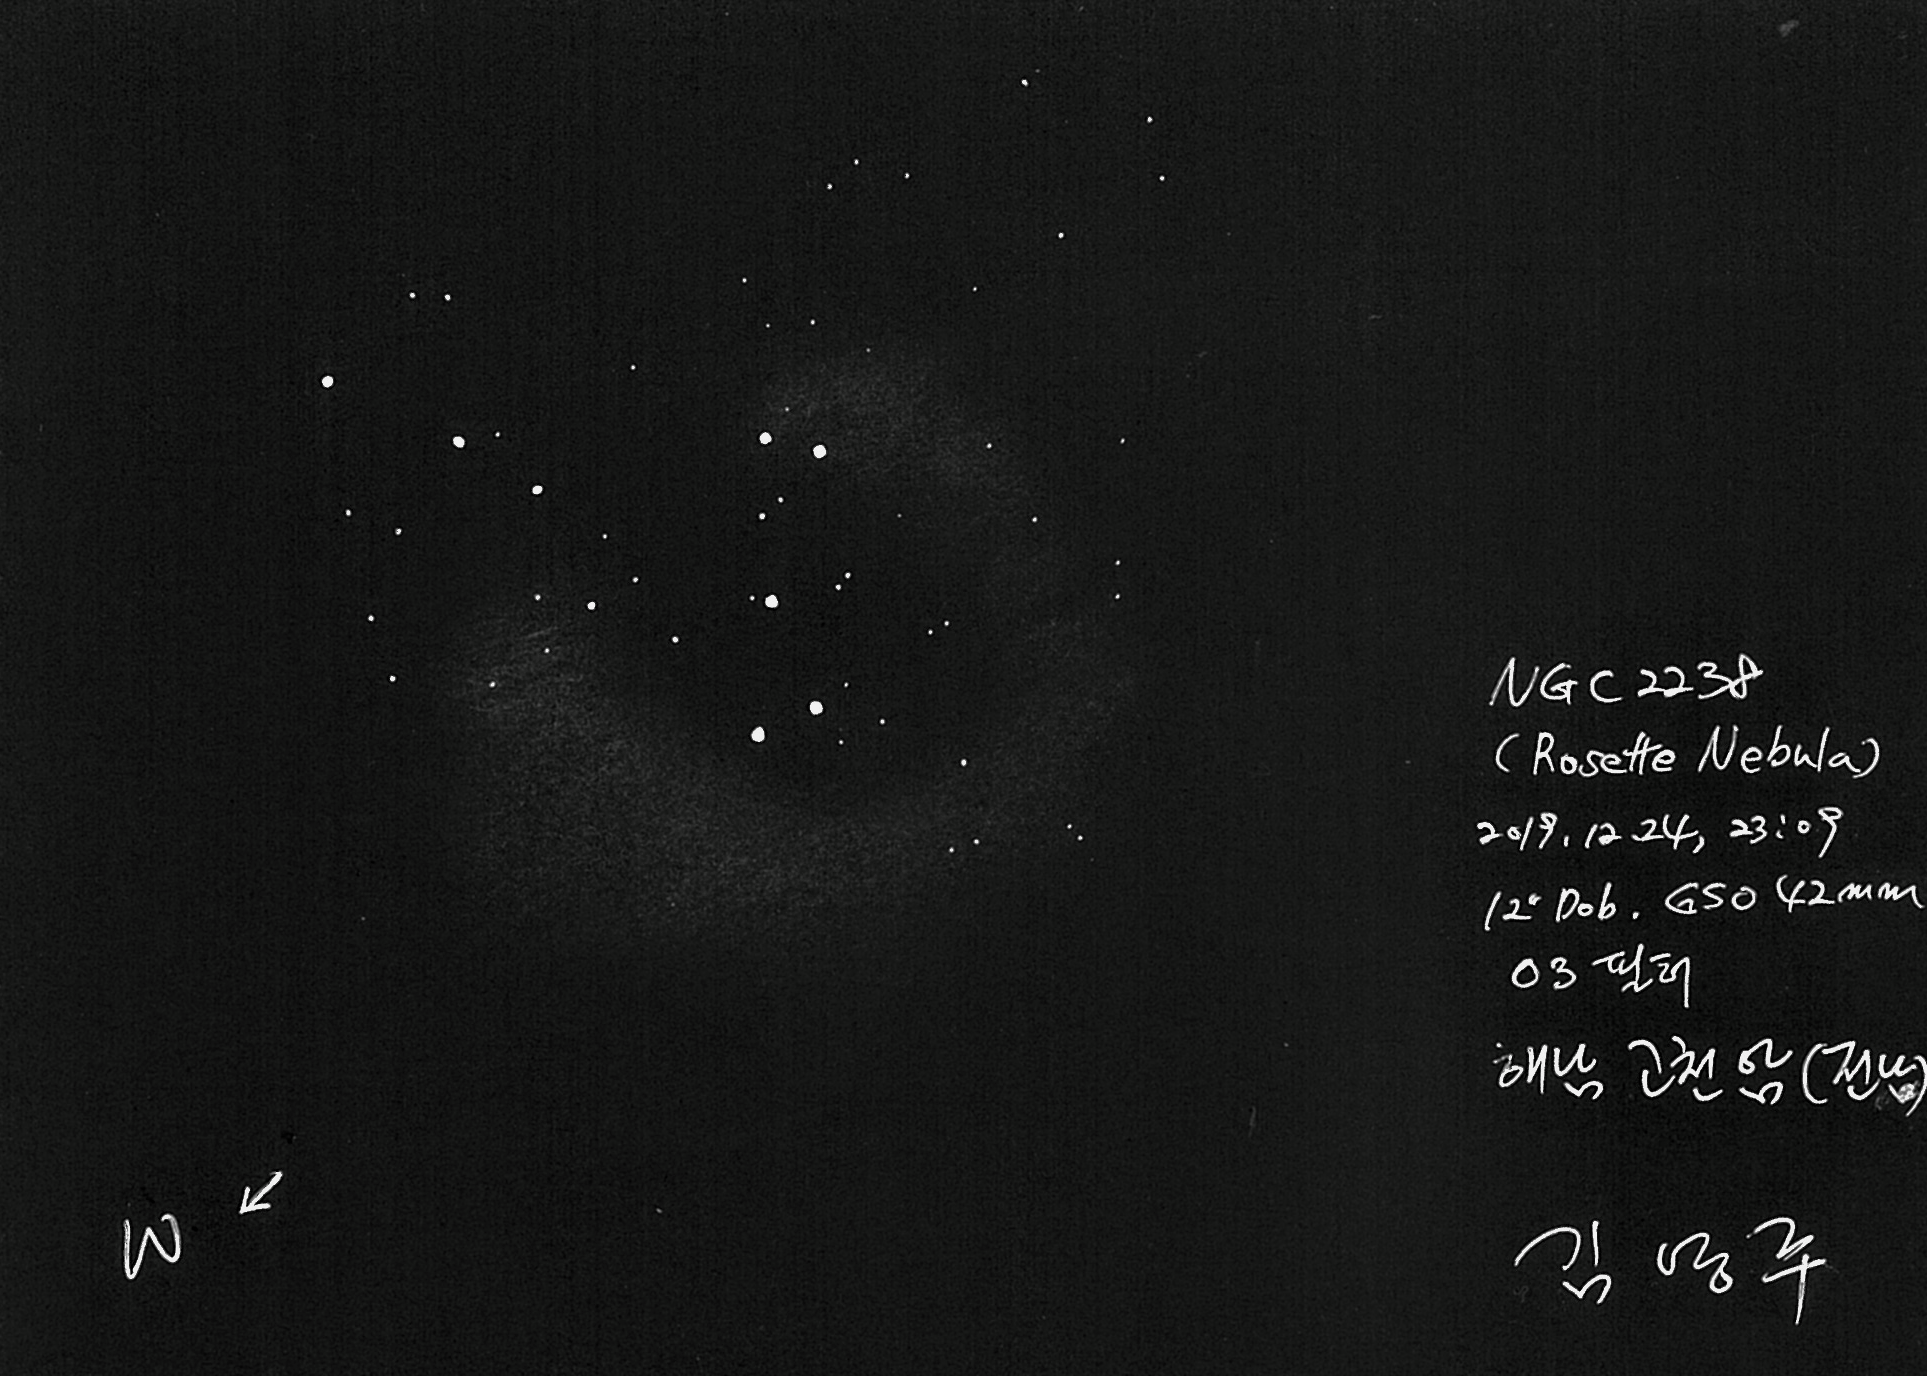 NGC 2238
(Rosette Nebula)
2019.12.24, 23:09
12" Dob. GSO 42mm
O3 필터
해남 고천암 (전남)
W ↙
김 영 주